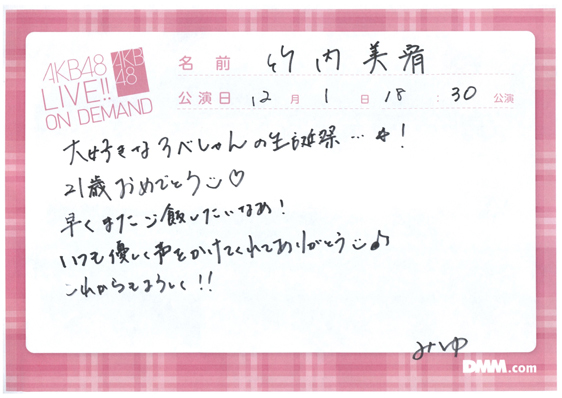 AKB48
LIVE!!
ON DEMAND
AKB
48
名前 竹内美宥
公演日 12月1日 18:30 公演
大好きなろべしゃんの生誕祭…☆!
21歳おめでとう♡
早くまたご飯したいなあ!
いつも優しく声をかけてくれてありがとう♪
これからもよろしく!!
みゆ
DMM.com